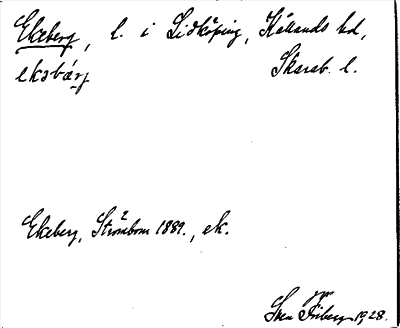 Ekeberg, l. i Lidköping, Kållands hd,
eksbärj Skarab. l.
Ekeberg, Strömbom² 1889., ek.
Sven Friberg 1928.